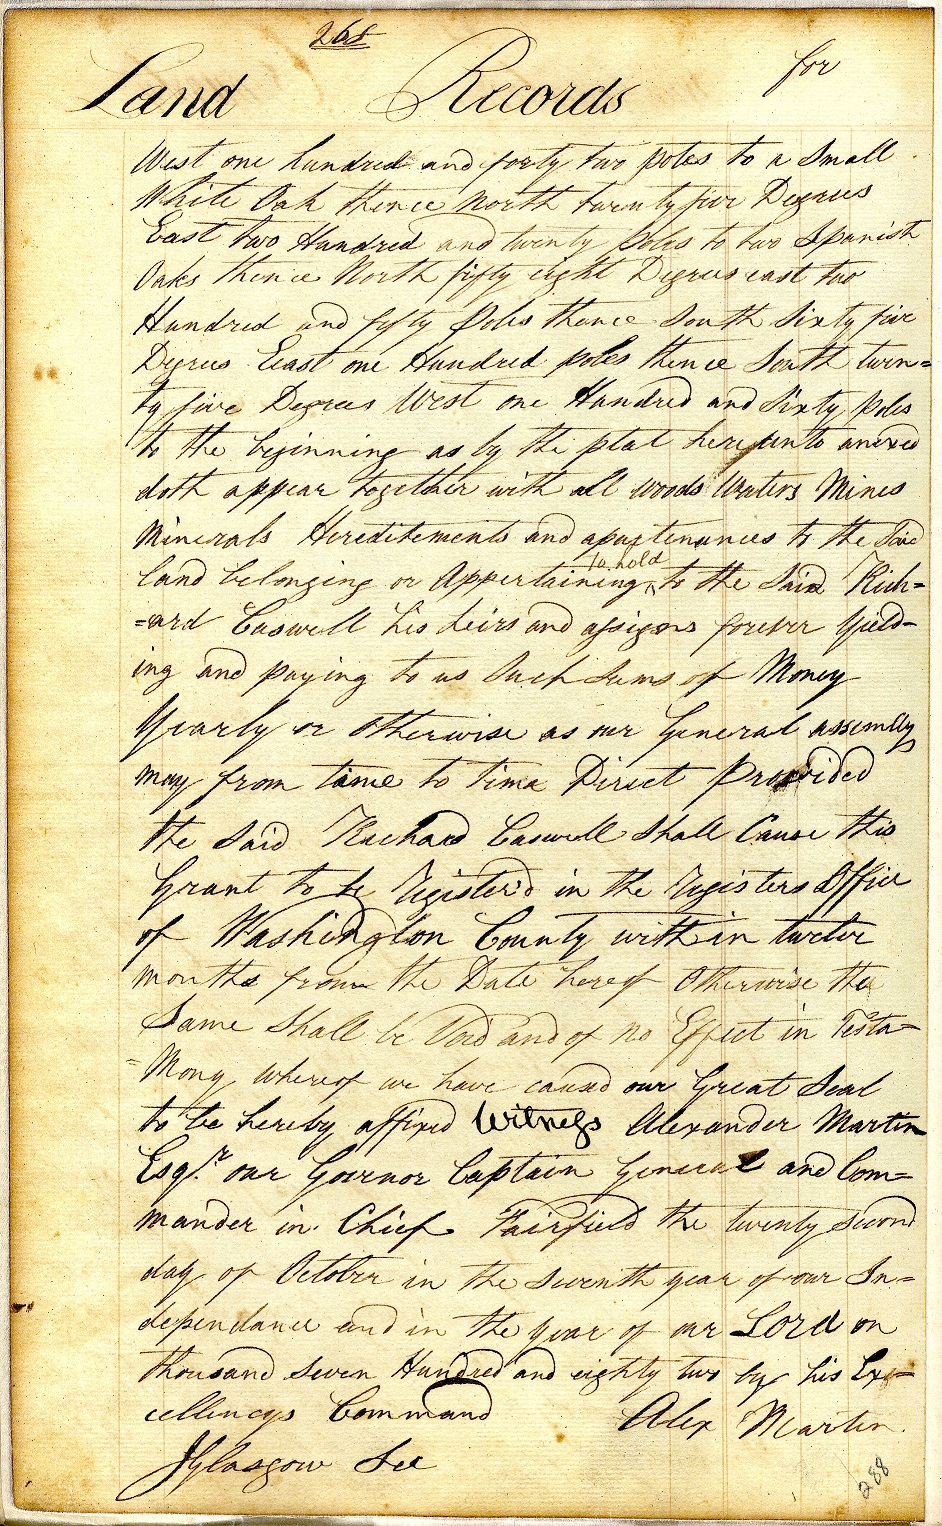 268
Land Records for
West one hundred and forty two poles to a Small
White Oak thence North twenty five Degrees
East two Hundred and twenty Poles to two Spanish
Oaks thence North fifty eight Degrees east two
Hundred and fifty Poles thence South Sixty five
Degrees East one Hundred poles thence South twen=
ty five Degrees West one Hundred and Sixty Poles
to the beginning as by the plat hereunto anexed
doth appear together with all woods Waters Mines
Minerals Hereditements and apartenances to the Said
to hold
land belonging or Appertaining ^ to the Said Rich=
=ard Caswell his heirs and assigns forever Yield=
ing and paying to us Such Sums of Money
Yearly or otherwise as our General assembly
may from time to time Direct Provided
the Said Richard Caswell Shall Cause this
Grant to be Register'd in the Registers Office
of Washington County with in twelve
months from the Date hereof Otherwise the
Same Shall be Void and of no Effect in Testa=
=Mony whereof we have caused our Great Seal
to be hereby affixed Witness Alexander Martin
Esqr. our Govrnor Captain General and Com=
mander in Chief Fairfield the twenty Second
day of October in the Seventh year of our In=
dependance and in the year of our Lord on
thousand Seven Hundred and eighty two by his Ex=
cellencys Command Alex Martin.
JGlasgow Sec
288